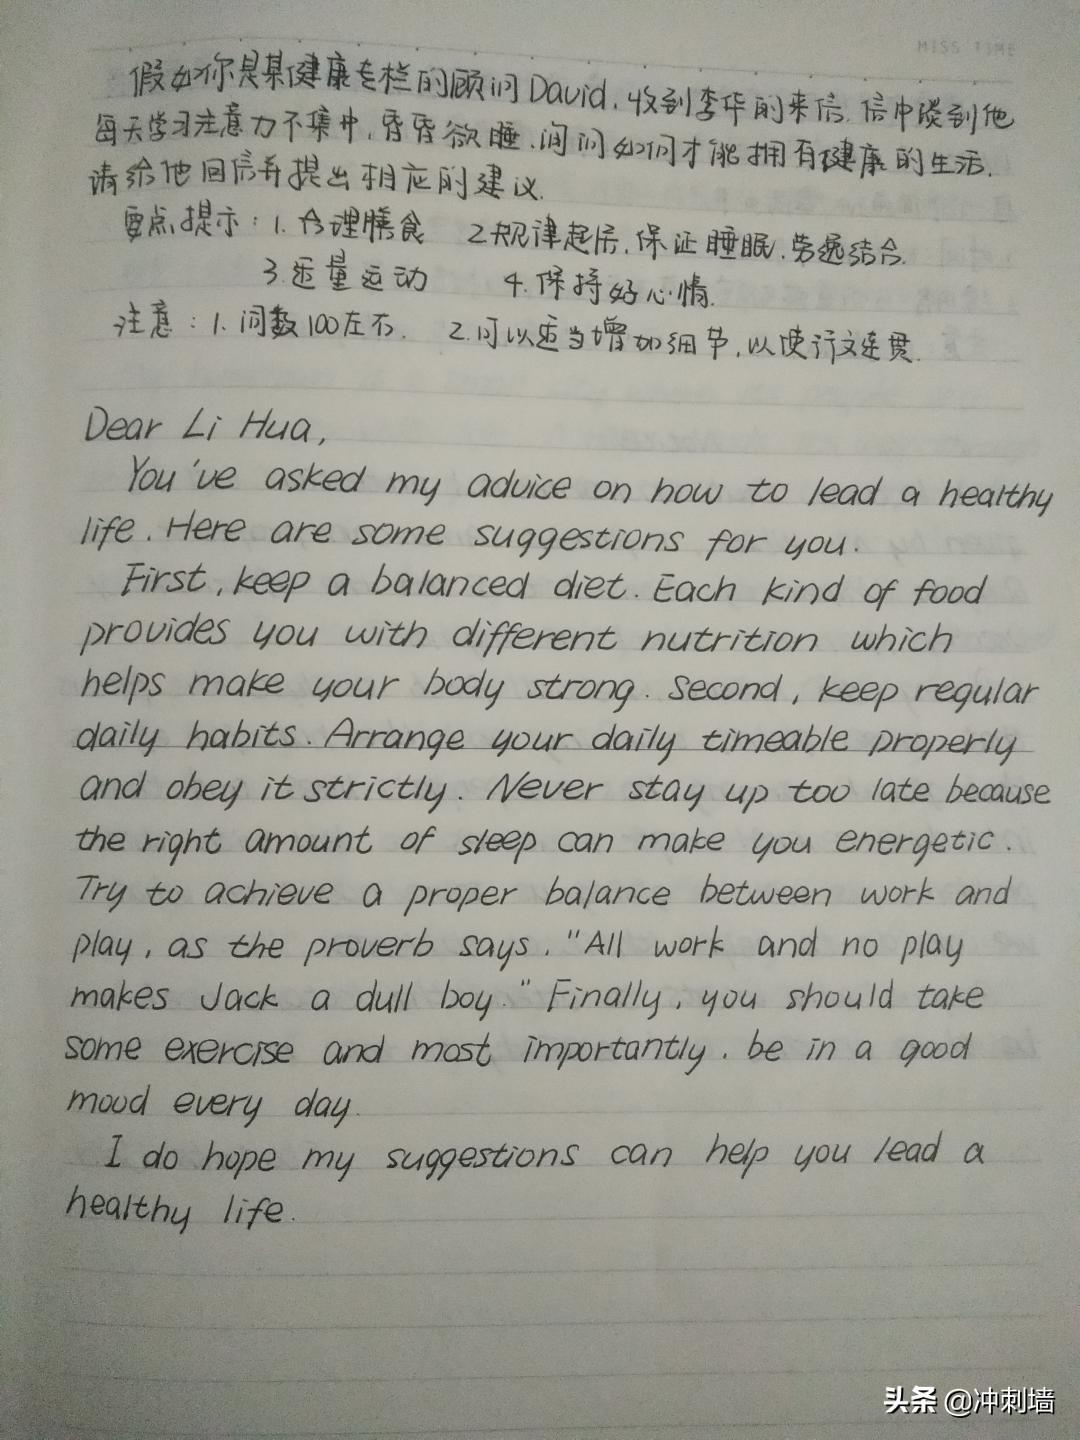 MISS TIME
假如你是某健康专栏的顾问David,收到李华的来信,信中谈到他
每天学习注意力不集中,昏昏欲睡,询问如何才能拥有健康的生活.
请给他回信并提出相应的建议.
要点提示:1.合理膳食 2.规律起居,保证睡眠,劳逸结合.
3.适量运动 4.保持好心情.
注意:1.词数100左右. 2.可以适当增加细节,以使行文连贯.
Dear Li Hua,
You've asked my advice on how to lead a healthy
life. Here are some suggestions for you.
First, keep a balanced diet. Each kind of food
provides you with different nutrition which
helps make your body strong. Second, keep regular
daily habits. Arrange your daily timeable properly
and obey it strictly. Never stay up too late because
the right amount of sleep can make you energetic.
Try to achieve a proper balance between work and
play, as the proverb says, "All work and no play
makes Jack a dull boy." Finally, you should take
some exercise and most importantly, be in a good
mood every day.
I do hope my suggestions can help you lead a
healthy life.
头条 @冲刺墙